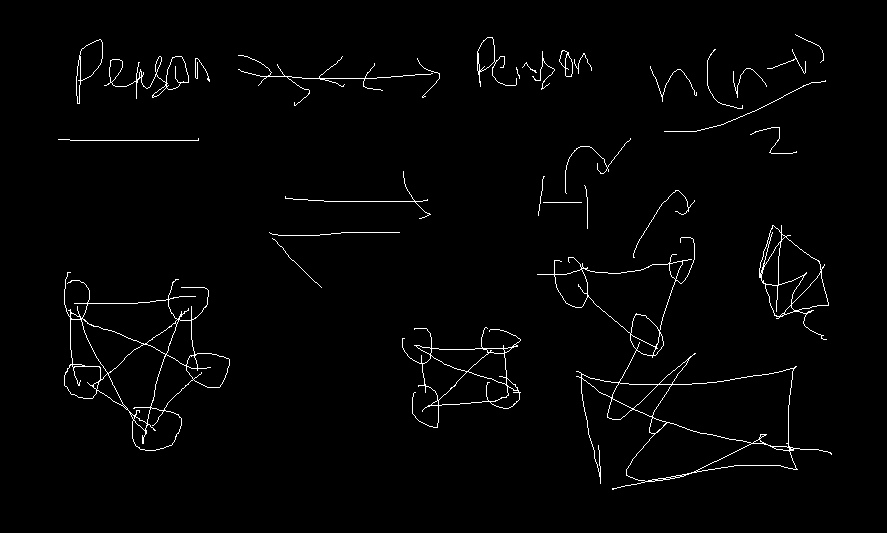 Person Person n(n-1)/2